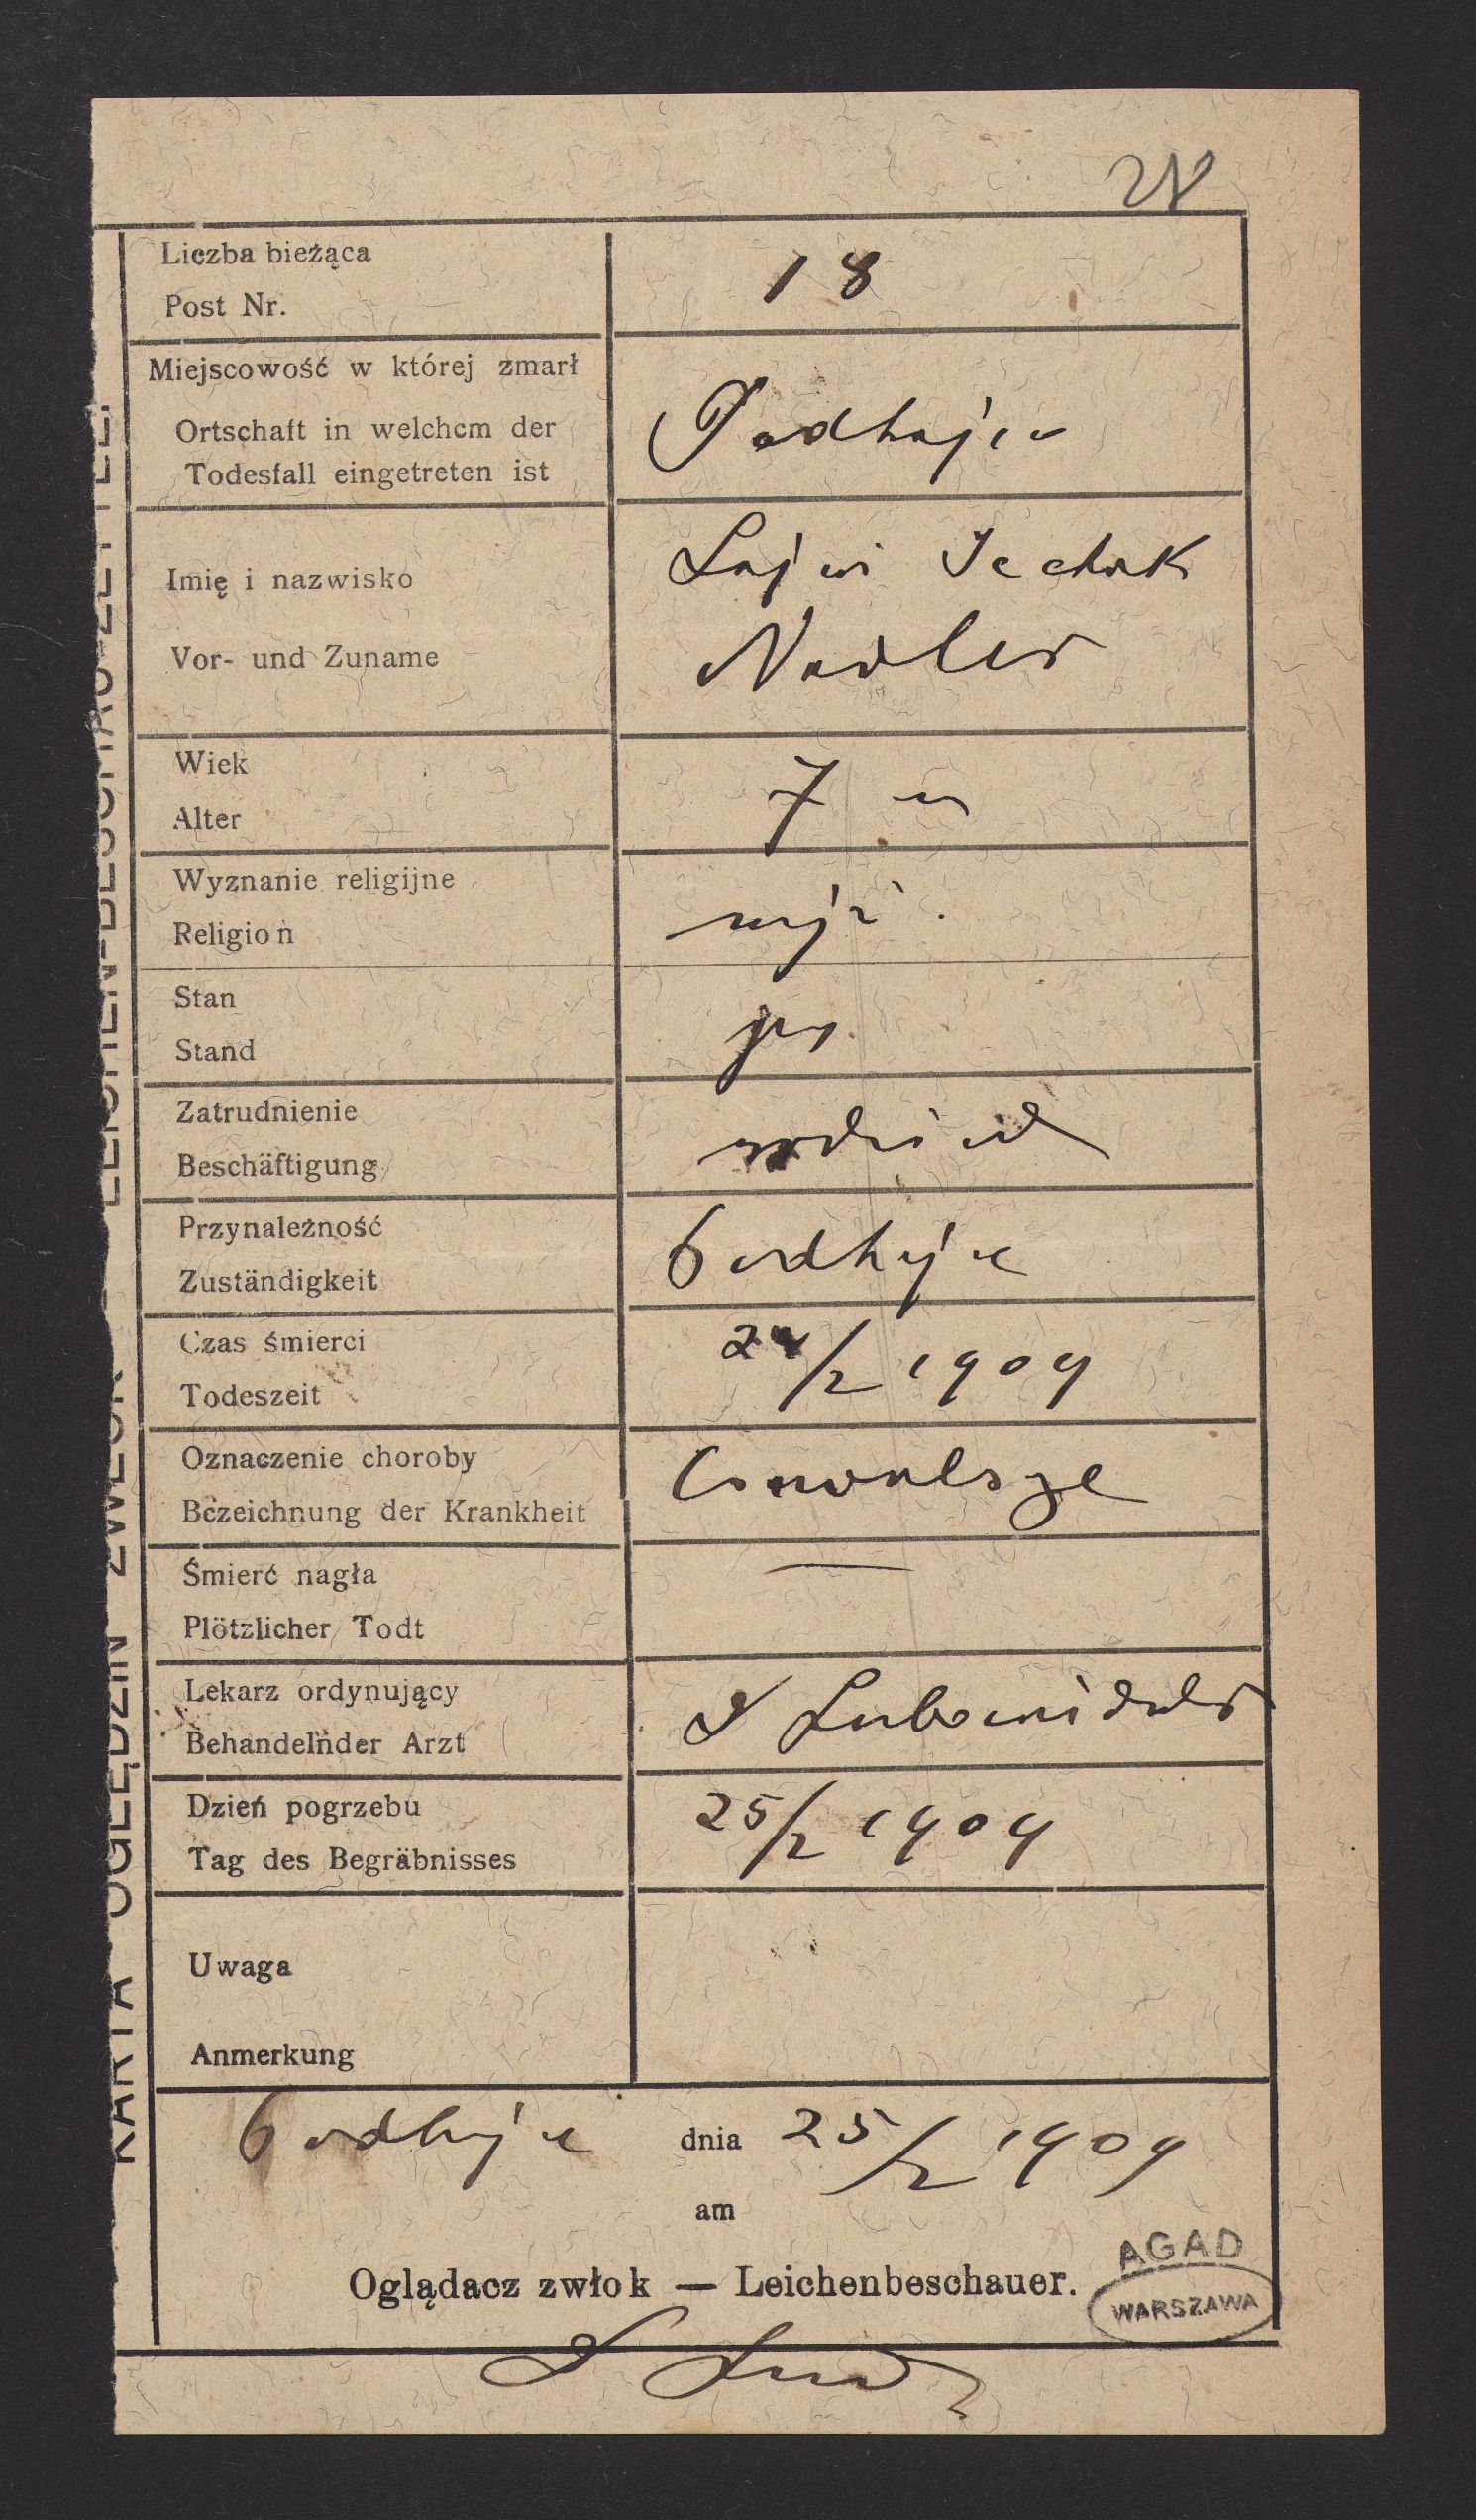 Liczba bieżąca
Post Nr.
18
Miejscowość w której zmarł
Ortschaft in welchem der
Todesfall eingetreten ist
Podhajce
Imię i nazwisko
Vor- und Zuname
Nadler
Wiek
Alter
7 m
Wyznanie religijne
Religion
mojż.
Stan
Stand
Zatrudnienie
Beschäftigung
Przynależność
Zuständigkeit
Podhajce
Czas śmierci
Todeszeit
24/2 1909
Oznaczenie choroby
Bezeichnung der Krankheit
Conwulsye
Śmierć nagła
Plötzlicher Todt
—
Lekarz ordynujący
Behandelnder Arzt
Dzień pogrzebu
Tag des Begräbnisses
25/2 1909
Uwaga
Anmerkung
Podhajce dnia 25/2 1909
am
Oglądacz zwłok — Leichenbeschauer.
AGAD
WARSZAWA
KARTA OGLĘDZIN ZWŁOK — LEICHEN-BESCHAU-ZETTEL.